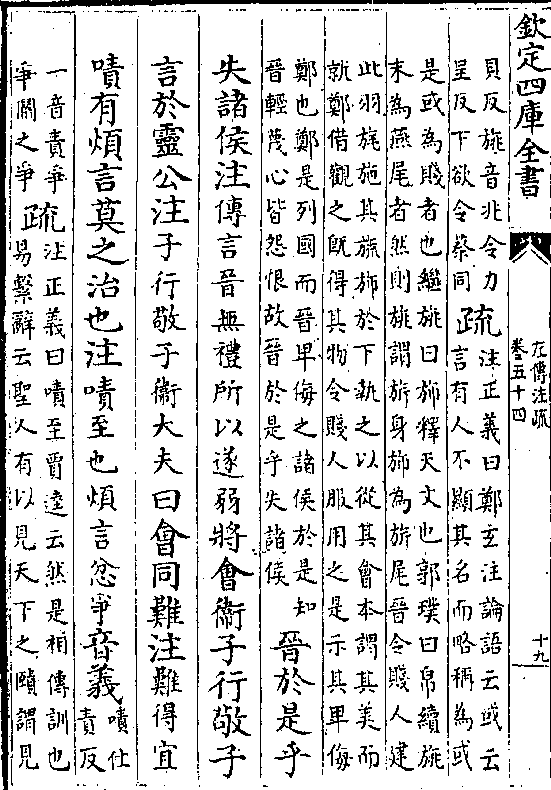 欽定四庫全書
左傳注疏
卷五十四
十九
貝反旐音兆令力
呈反下欲令蔡同
疏
注正義曰鄭玄注論語云或云
言有人不顯其名而略稱為或
是或為賤者也繼旐曰旆釋天文也郭璞曰帛續旐
末為燕尾者然則旐謂旂身旆為旂尾晉令賤人建
此羽旄施其旐旆於下執之以從其會本謂其美而
就鄭借觀之既得其物令賤人服用之是示其卑侮
鄭也鄭是列國而晉卑侮之諸侯於是知
晉輕蔑心皆怨恨故晉於是乎失諸侯
晉於是乎
失諸侯注傳言晉無禮所以遂弱將會衞子行敬子
言於靈公注子行敬子衞大夫曰會同難注難得宜
嘖有煩言莫之治也注嘖至也煩言忿爭音義
嘖仕
責反
一音責爭
爭鬭之爭
疏
注正義曰嘖至賈逵云然是相傳訓也
易繫辭云聖人有以見天下之賾謂見